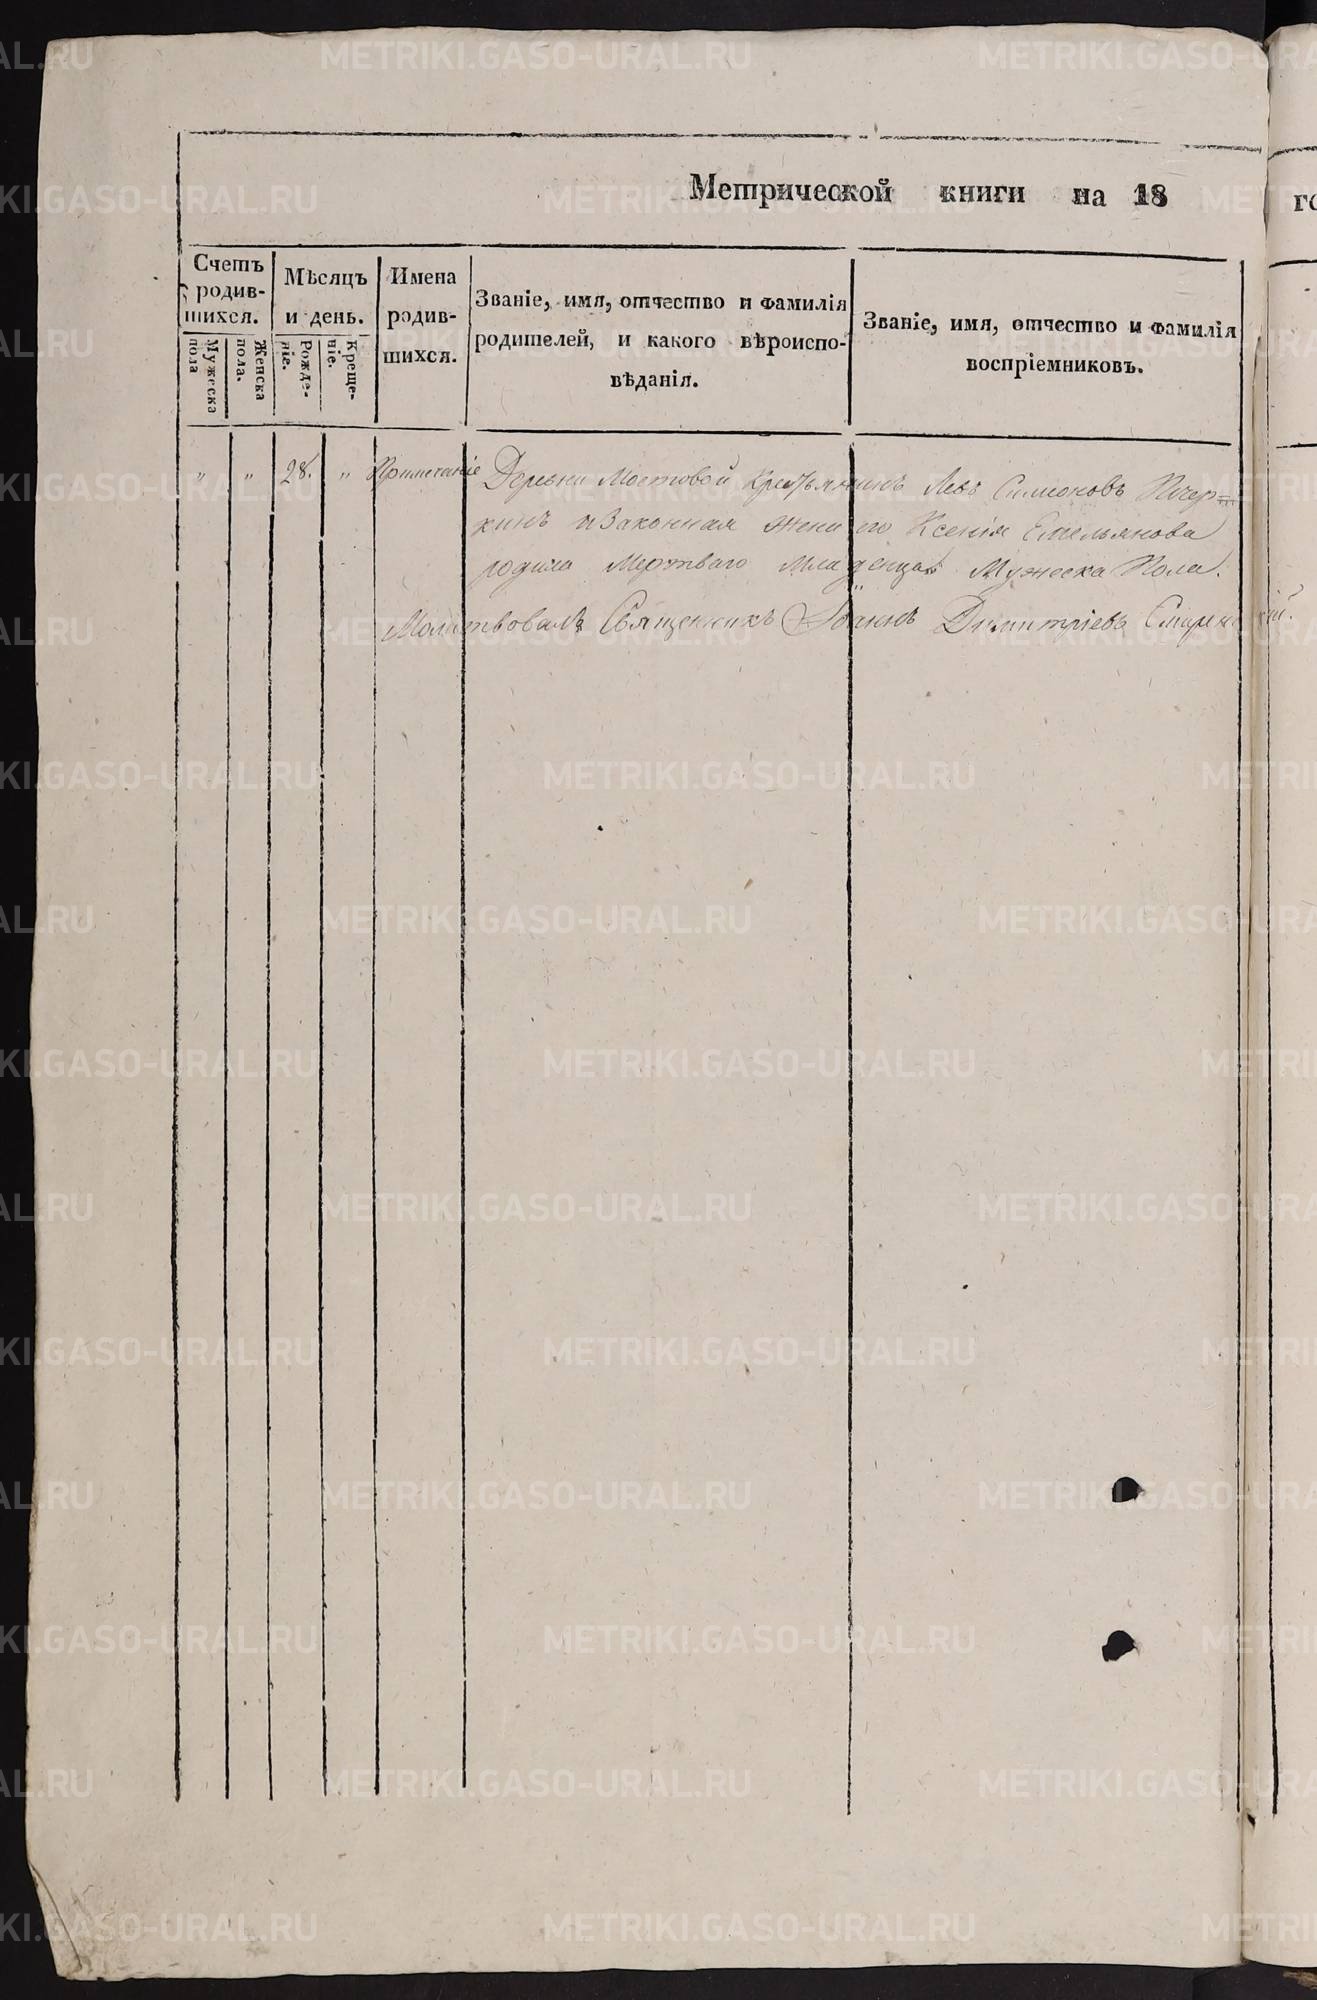 Метрической книги на 18
го
Счетъ родившихся.
Мѣсяцъ и день.
Имена родившихся.
Званіе, имя, отчество и фамилія
родителей, и какого вѣроиспо-
вѣданія.
Званіе, имя, отчество и фамилія
воспріемниковъ.
Мужеска пола
Женска пола.
Рожде-
ніе.
Креще-
ніе.
" " 28. " Примечаніе Деревни Мостовой Крестьянинъ Левъ Симеоновъ
кинъ и Законная жена его Ксенія Емельянова
родила Мертваго Младенца Мужеска Пола.
Молитвовалъ Священникъ Іоаннъ Димитріевъ
METRIKI.GASO-URAL.RU